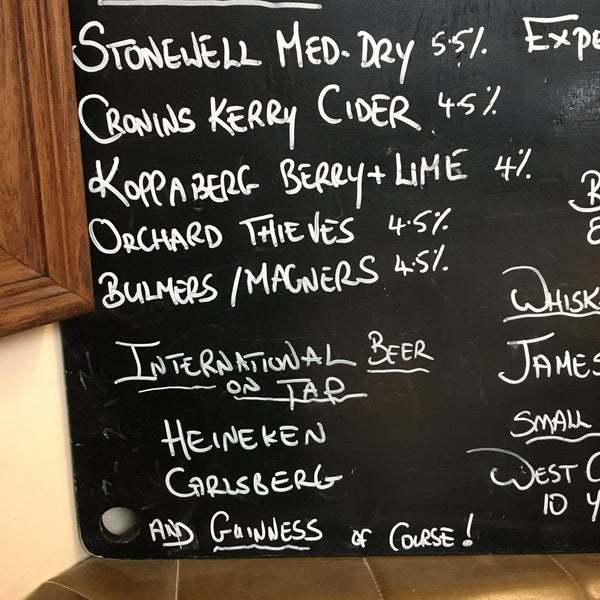 STONEWELL MED-DRY 5.5%
CRONINS KERRY CIDER 4.5%
KOPPABERG BERRY + LIME 4%
ORCHARD THIEVES 4.5%
BULMERS / MAGNERS 4.5%
INTERNATIONAL BEER
ON TAP
HEINEKEN
CARLSBERG
AND GUINNESS OF COURSE!
EXPE
WHISK
JAMES
SMALL
WEST C
10 Y